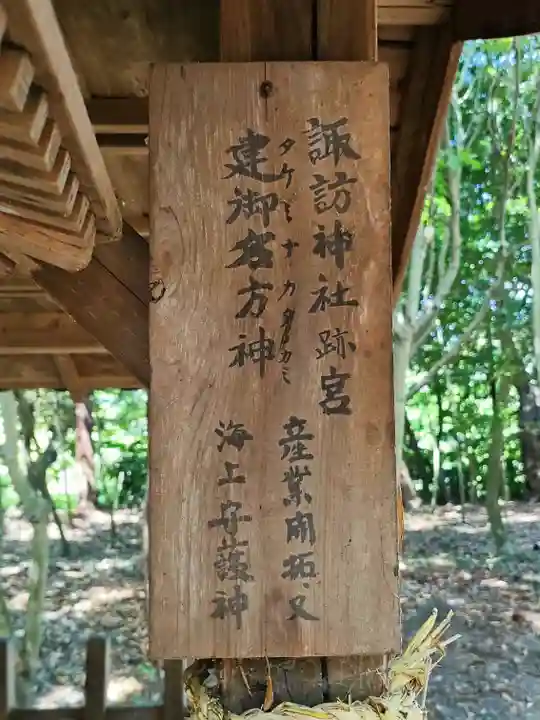 諏訪神社跡宮
産業開拓、又
タケミナカタノカミ
建御名方神
海上守護神